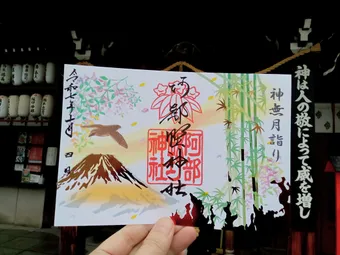 神は人の敬によって威を増し
神無月詣り
阿部野神社
阿部
神社
令和七年十月 四日